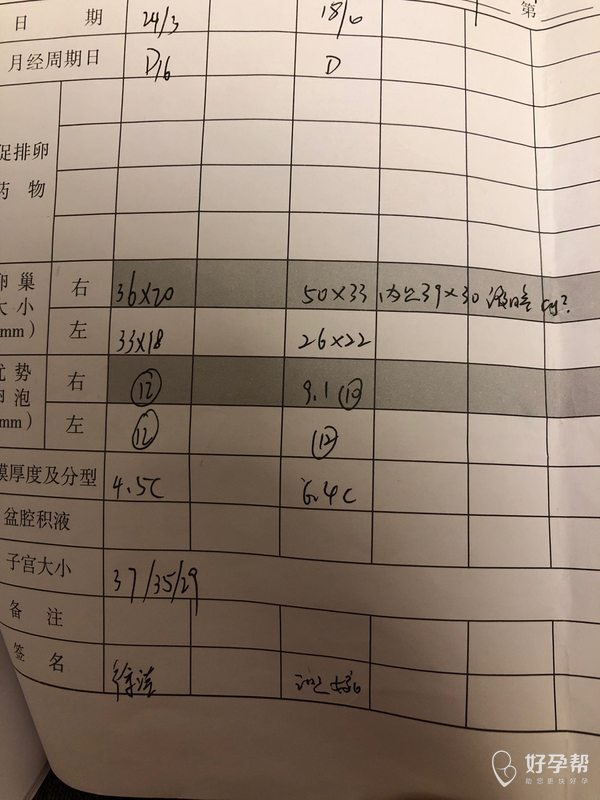 第
日 期 24/3 18/6
月经周期日 D16 D
促排卵
药 物
卵 巢
大 小
(mm)
右 36×20 50×33 内见39×30
左 33×18 26×22
优 势
卵 泡
(mm)
右 ⑫ 9.1
左 ⑫ ⑫
膜厚度及分型 4.5C 6.4C
盆腔积液
子宫大小 37/35/29
备 注
签 名
好孕帮
助您更快好孕